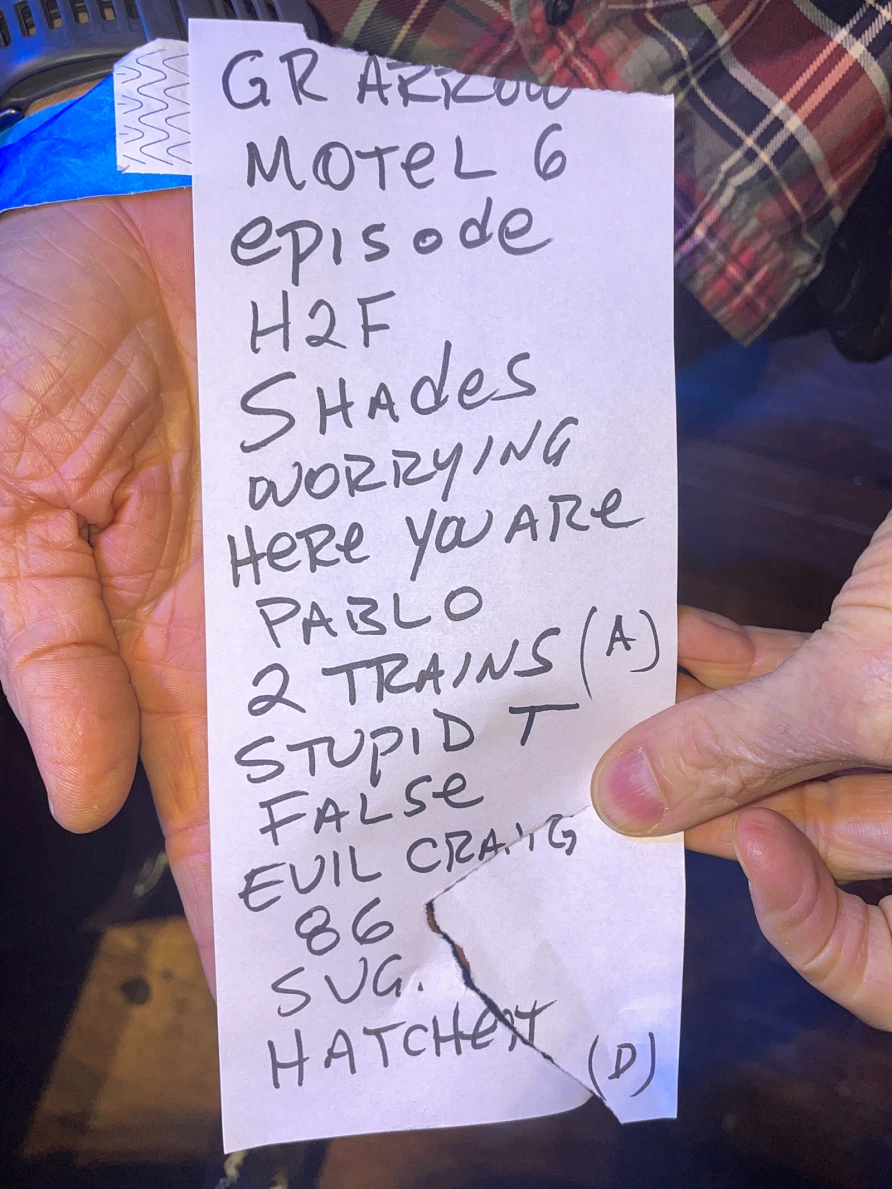 GR ARROW
MOTEL 6
episode
H2F
SHAdes
WORRYING
HeRe YOU ARe
PABLO
2 TRAINS (A)
STUPID T
FALSe
EVIL CRAIG
86
SVG.
HATCHeT (D)